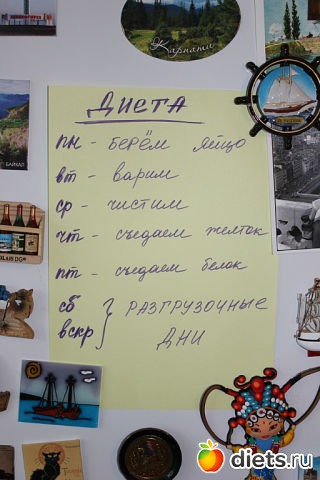 Карпати
ДИЕТА
пн - берём яйцо
вт - варим
ср - чистим
чт - съедаем желток
пт - съедаем белок
сб
вскр } РАЗГРУЗОЧНЫЕ
ДНИ
БАЙКАЛ
diets.ru